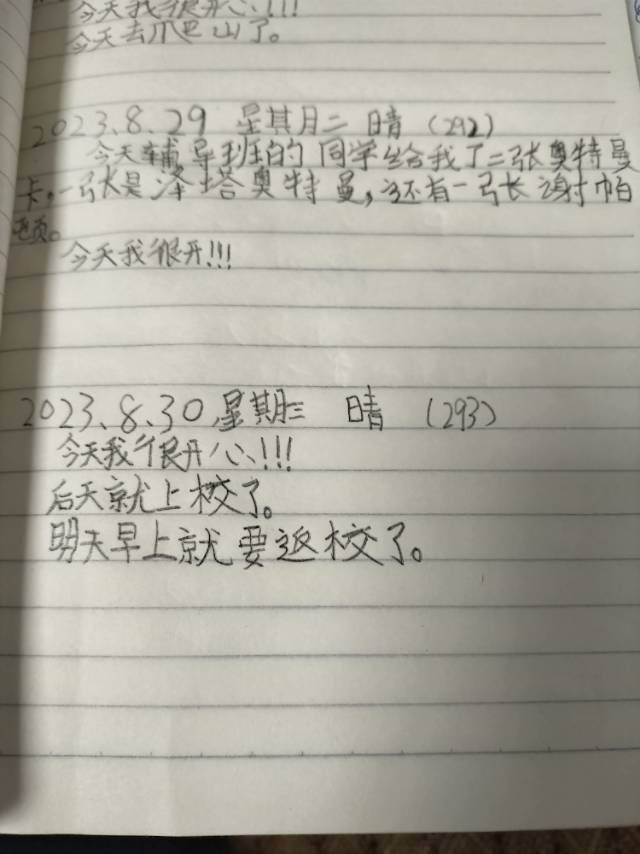 今天我很开心!!!
今天去爪巴山了。
2023.8.29 星其月二 晴 (292)
今天辅导班的同学给我了二张奥特曼
卡,一张是泽塔奥特曼,还有一张谢帕
屯页。
今天我很开!!!
2023.8.30 星期三 晴 (293)
今天我很开心!!!
后天就上校了。
明天早上就要返校了。